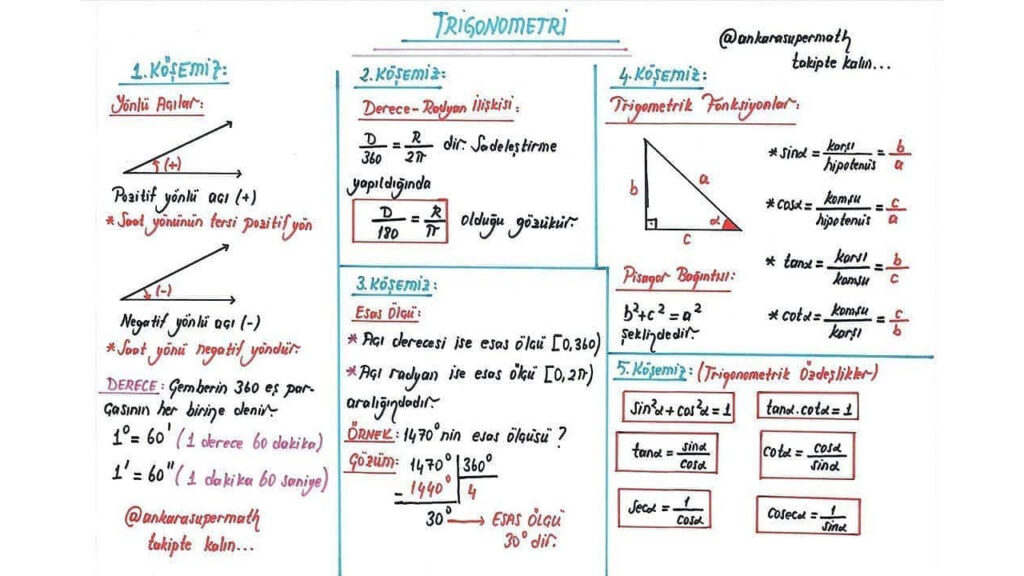 TRİGONOMETRİ
@ankarasupermath
takipte kalın...
1. KÖŞEMİZ:
Yönlü Açılar:
(+)
Pozitif yönlü açı (+)
* Saat yönünün tersi pozitif yön
(-)
Negatif yönlü açı (-)
* Saat yönü negatif yöndür.
DERECE: Çemberin 360 eş par-
çasının her birine denir.
1° = 60' (1 derece 60 dakika)
1' = 60'' (1 dakika 60 saniye)
@ankarasupermath
takipte kalın...
2. KÖŞEMİZ:
Derece-Radyan İlişkisi:
D/360 = R/2π dir. Sadeleştirme
yapıldığında
D/180 = R/π olduğu gözükür.
3. KÖŞEMİZ:
Esas Ölçü:
* Açı derecesi ise esas ölçü [0,360)
* Açı radyan ise esas ölçü [0,2π)
aralığındadır.
ÖRNEK: 1470° nin esas ölçüsü?
Çözüm: 1470° | 360°
- 1440° | 4
30° → ESAS ÖLÇÜ
30° dir.
4. KÖŞEMİZ:
Trigometrik Fonksiyonlar:
b
a
α
c
* sinα = karşı/hipotenüs = b/a
* cosα = komşu/hipotenüs = c/a
* tanα = karşı/komşu = b/c
* cotα = komşu/karşı = c/b
Pisagor Bağıntısı:
b² + c² = a²
şeklindedir.
5. Köşemiz: (Trigonometrik Özdeşlikler)
sin²α + cos²α = 1
tanα . cotα = 1
tanα = sinα/cosα
cotα = cosα/sinα
secα = 1/cosα
cosecα = 1/sinα